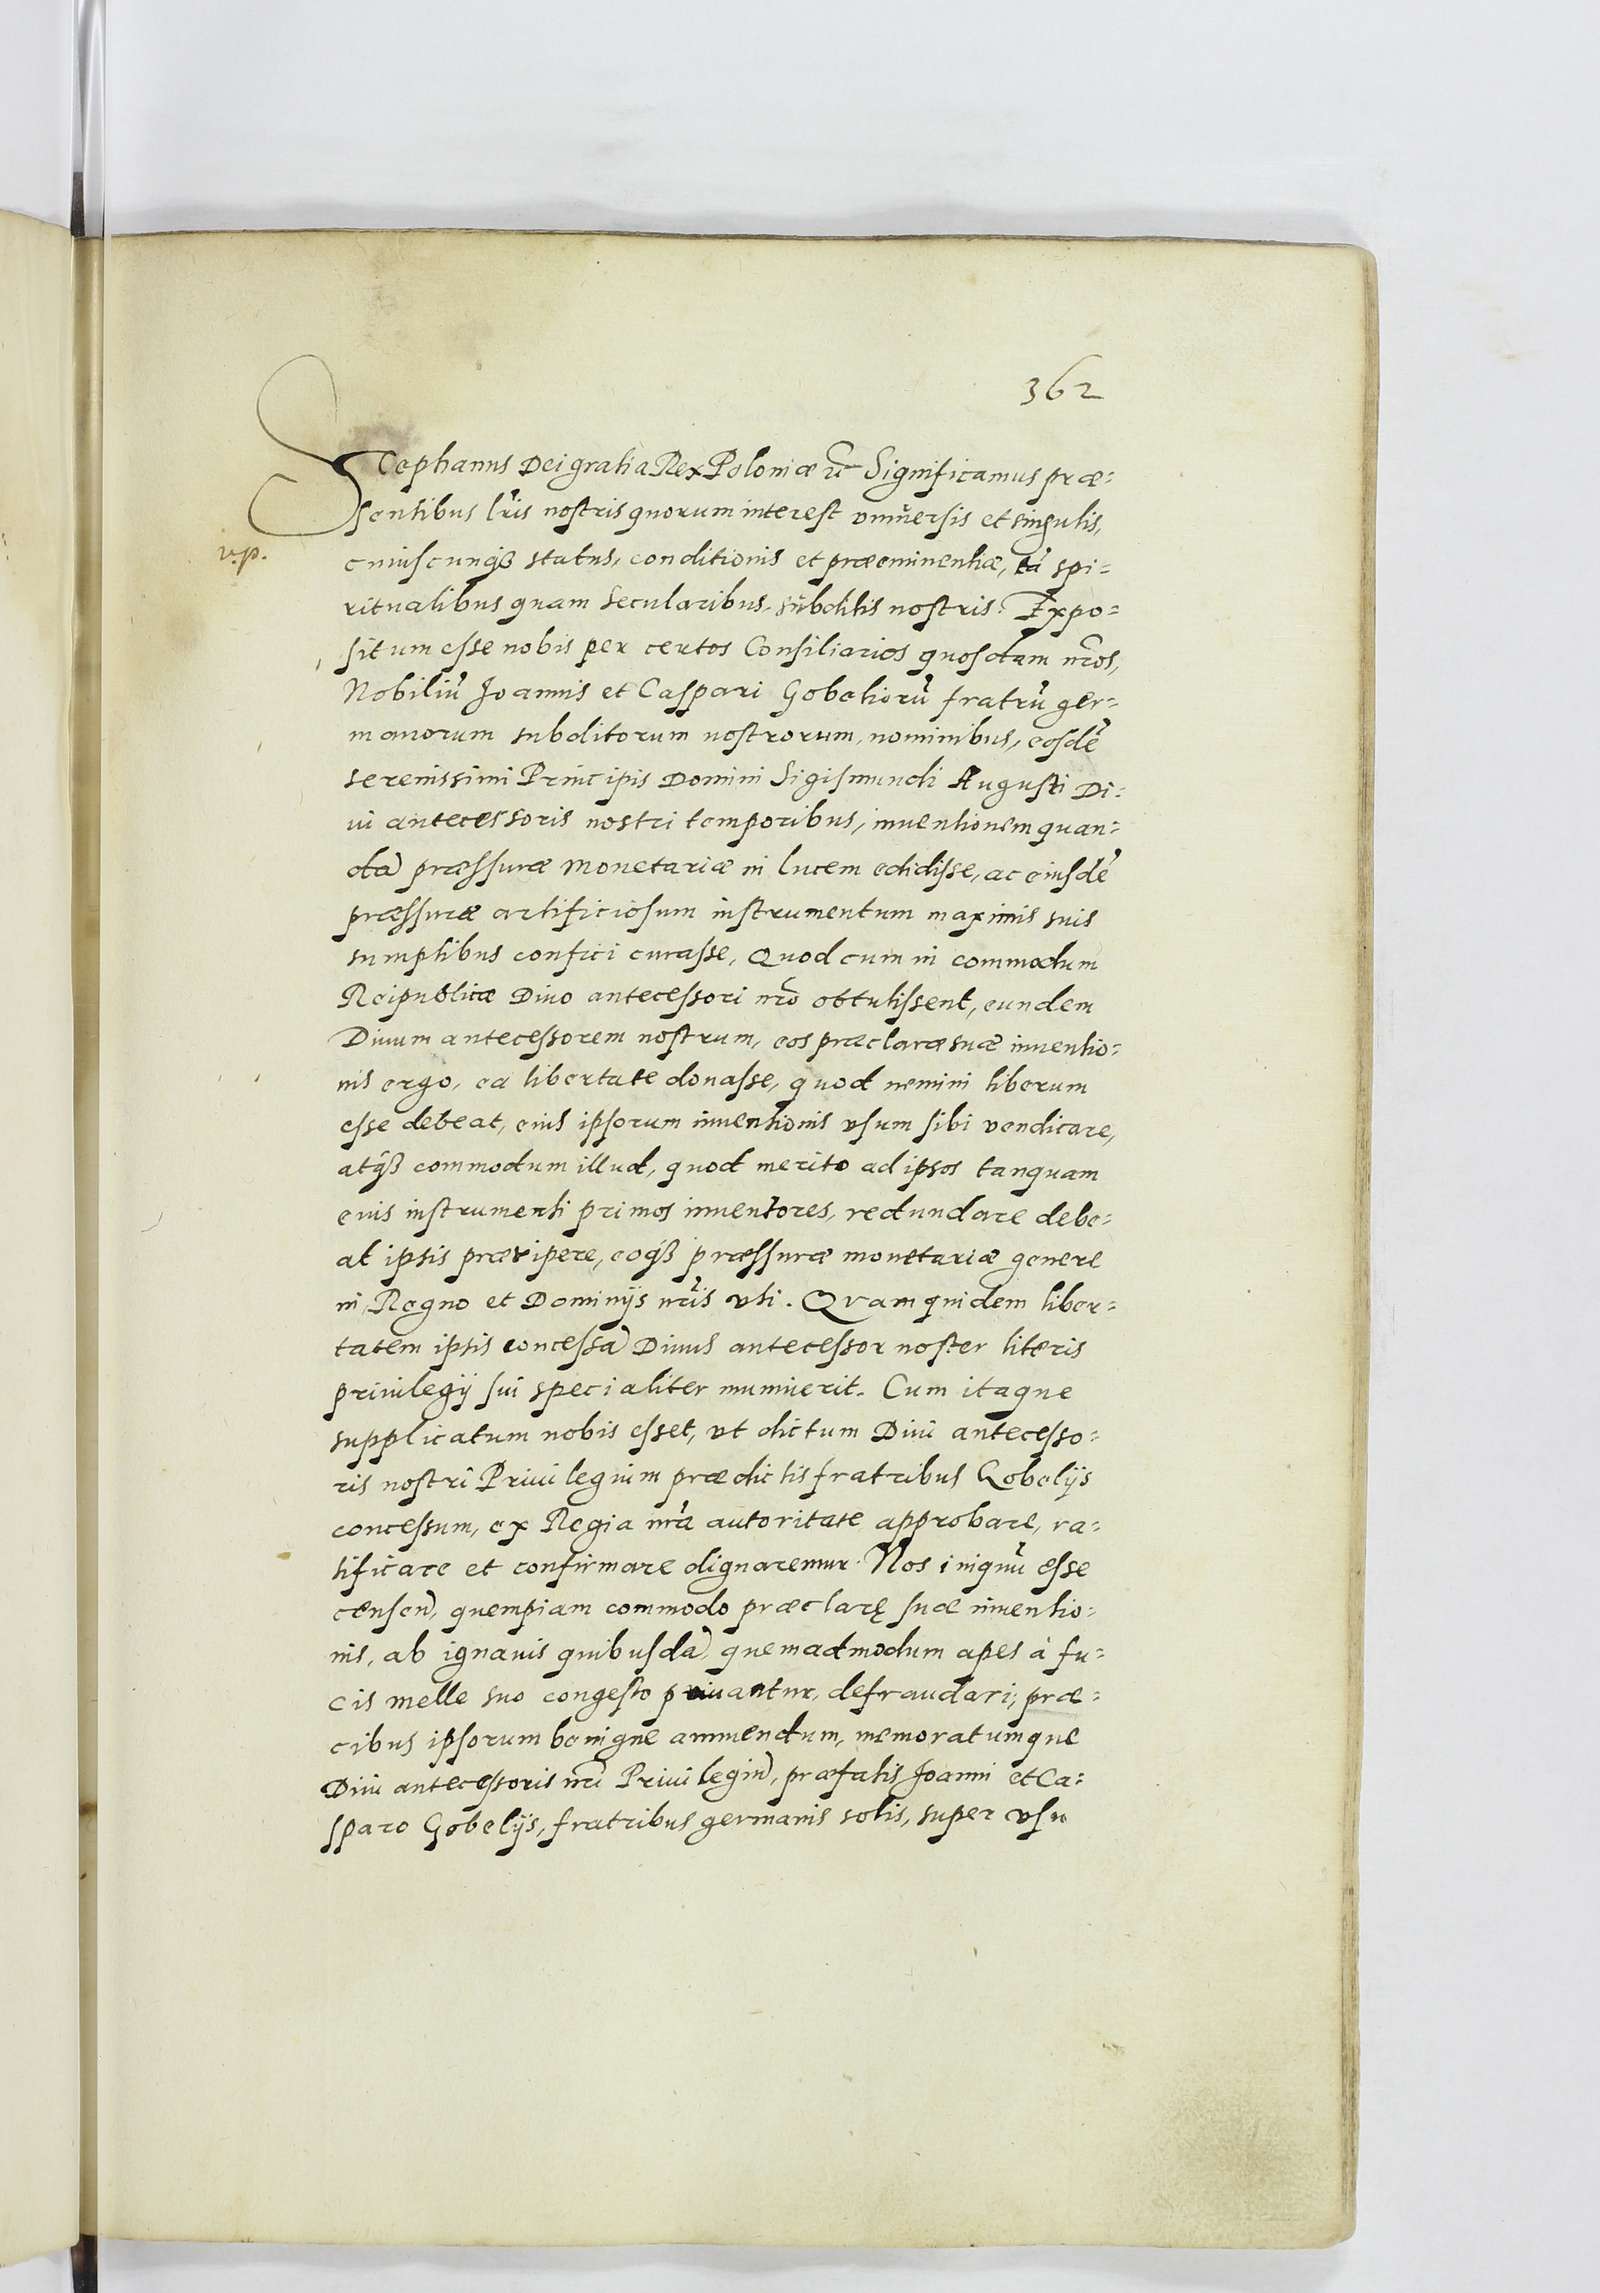 362
Stephanus Dei gratia Rex Poloniæ ꝛc̃ Significamus præ=
sentibus lr̃is nostris quorum interest vniuersis et singulis,
v.p.
cuiuscunqꝫ status, conditionis et præeminentiæ, tã spi=
ritualibus quam secularibus, subditis nostris. Expo=
situm esse nobis per certos Consiliarios quosdam nr̃os,
Nobiliũ Joannis et Caspari Gobeliorũ fratrũ ger=
manorum subditorum nostrorum, nominibus, eosdẽ
serenissimi Principis Domini Sigismundi Augusti Di=
ui antecessoris nostri temporibus, inuentionem quan=
dã præssuræ monetariæ in lucem edidisse, ac eiusdẽ
præssuræ artificiosum instrumentum maximis suis
sumptibus confici curasse, Quod cum in commodum
Reipublicæ Diuo antecessori nr̃o obtulissent, eundem
Diuum antecessorem nostrum, eos præclaræ suæ inuentio=
nis ergo, ea libertate donasse, quod nemini liberum
esse debeat, eius ipsorum inuentionis vsum sibi vendicare,
atqꝫ commodum illud, quod merito ad ipsos tanquam
eius instrumenti primos inuentores, redundare debe=
at ipsis præripere, eoqꝫ præssuræ monetariæ genere
in Regno et Dominijs nr̃is vti. Quam quidem liber=
tatem ipsis concessã Diuus antecessor noster literis
priuilegij sui specialiter muniuerit. Cum itaque
supplicatum nobis esset, vt dictum Diui antecesso=
ris nostri Priuilegium prædictis fratribus Gobelijs
concessum, ex Regia nr̃a autoritate approbare, ra=
tificare et confirmare dignaremur. Nos iniquũ esse
censeñ, quempiam commodo præclarę suæ inuentio=
nis, ab ignauis quibusdã, quemadmodum apes à fu=
cis melle suo congesto priuantur, defraudari; præ=
cibus ipsorum benigne annuendum, memoratumque
Diui antecessoris nr̃i Priuilegiũ, præfatis Joanni et Ca=
sparo Gobelijs, fratribus germanis solis, super vsu